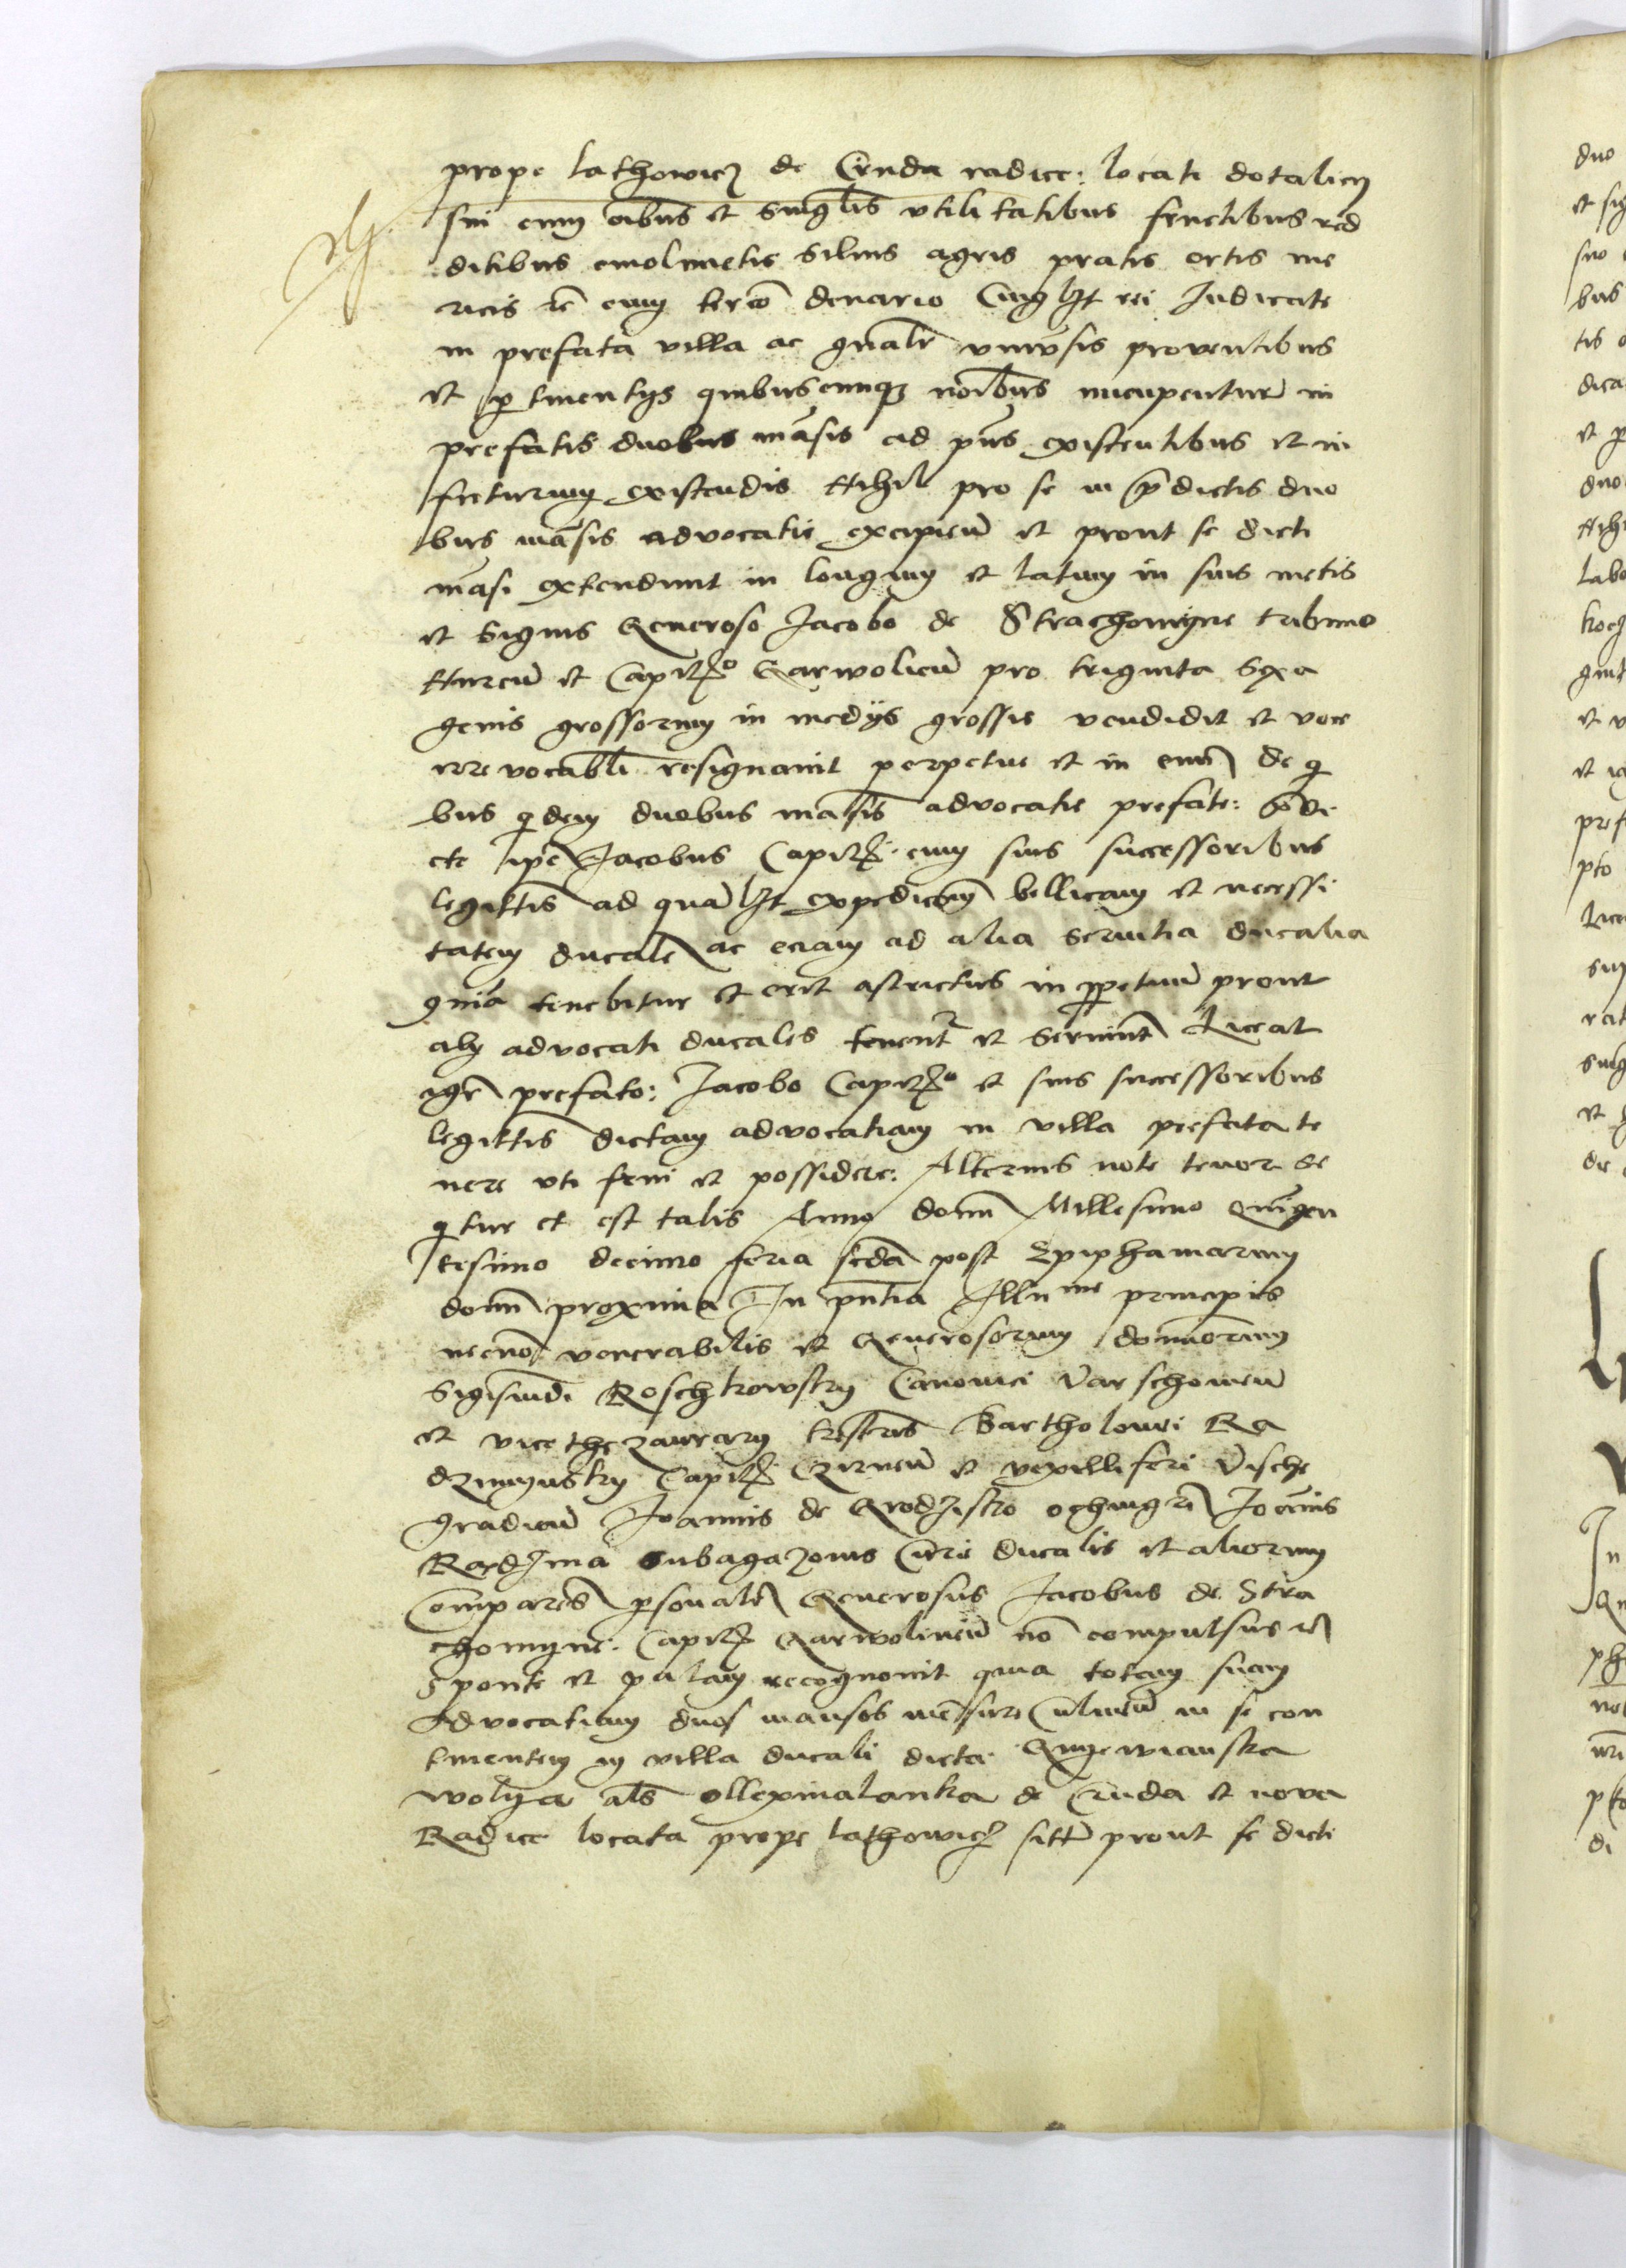 prope lathowicz de Cruda radice: locati dotaliciј
sui cum oibus et singlis vtilitatibus fructibus red
ditibus emolimetis siluis agris pratis ortis me
ricis tercio denario cuiuslibet rei Judicate
in prefata villa ac gnalr vniusis proventibus
et ptinentijs quibuscumqz noibus nucupentur in
prefatis duobus masis ad pns existentibus et in
futurum existendis Nihil pro se in pdictis duo
bus masis advocatie excipieu et prout se dicti
masi extendunt in longum et latum in suis metis
et signis Generoso Jacobo de Strachomyne tribuno
Nurcu et Capitz° Garwolieu pro triginta sexa
genis grossorum in medijs grossis vendidit et voce
irrevocabli resignauit perpetue et in euu de q
bus qdem duobus masis advocatie prefate:
ipe Jacobus Capitz. cum suis successoribus
legittis ad qualzt expedicem bellicam et necessi
tatem ducale ac eciam ad alia seruitia ducalia
gnia tenebitur et erit astrictus in ppetuu prout
alij advocati ducales tenent et seruiunt Liceat
igr prefato: Jacobo Capitz° et suis successoribus
legittis dictam advocatiam in villa prefata te
nere vti frui et possidere: Alterius note tenor se
qtur et est talis Anno domi Millesimo Quigen
tesimo decimo feria seda post Epiphaniarum
domi proxima In pntia Illu me principis
necno venerabilis et Generosorum domnorum
Sigismudi Roschkowsky Canonici Varschouieu
et vicethezaurarij Bartholomei Ra
dzimynsky Capitz Czirneu et vexilliferi Vische
gradieu Joannis de Grodzisko Joannis
Radzima subagazonis Curie ducalis et aliorum
Comparēs psonalr Generosus Jacobus de Stra
chomyne: Capitz Garwolineu no compulsus
sponte et palam recognouit quia totam suam
Advocatiam duos mansos mesure Culmeu in se con
tinentem in villa ducali dicta
wolya als ollexinalanka de Cruda et nova
Radice locata prope lathowicz sitt prout se dicti